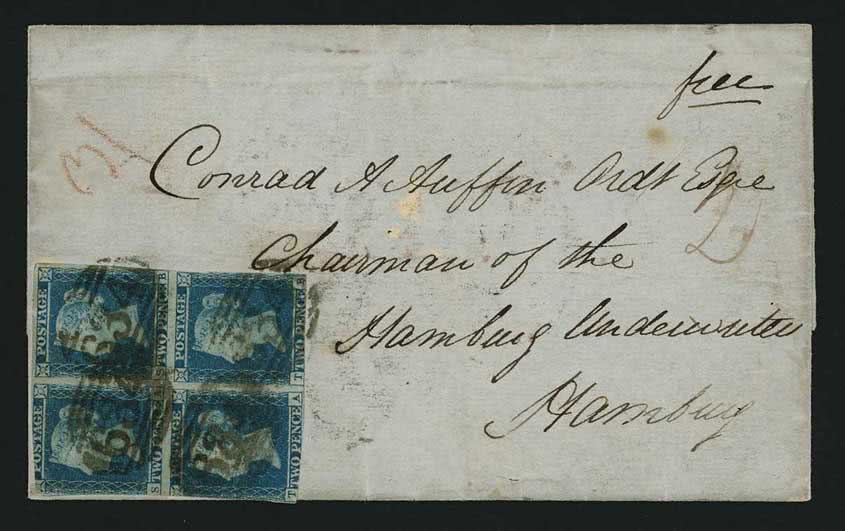 free
Conrad A Auffm Ordt Esqre
Chairman of the
Hamburg Underwriters
Hamburg
2
POSTAGE TWO PENCE
POSTAGE TWO PENCE
POSTAGE TWO PENCE
POSTAGE TWO PENCE